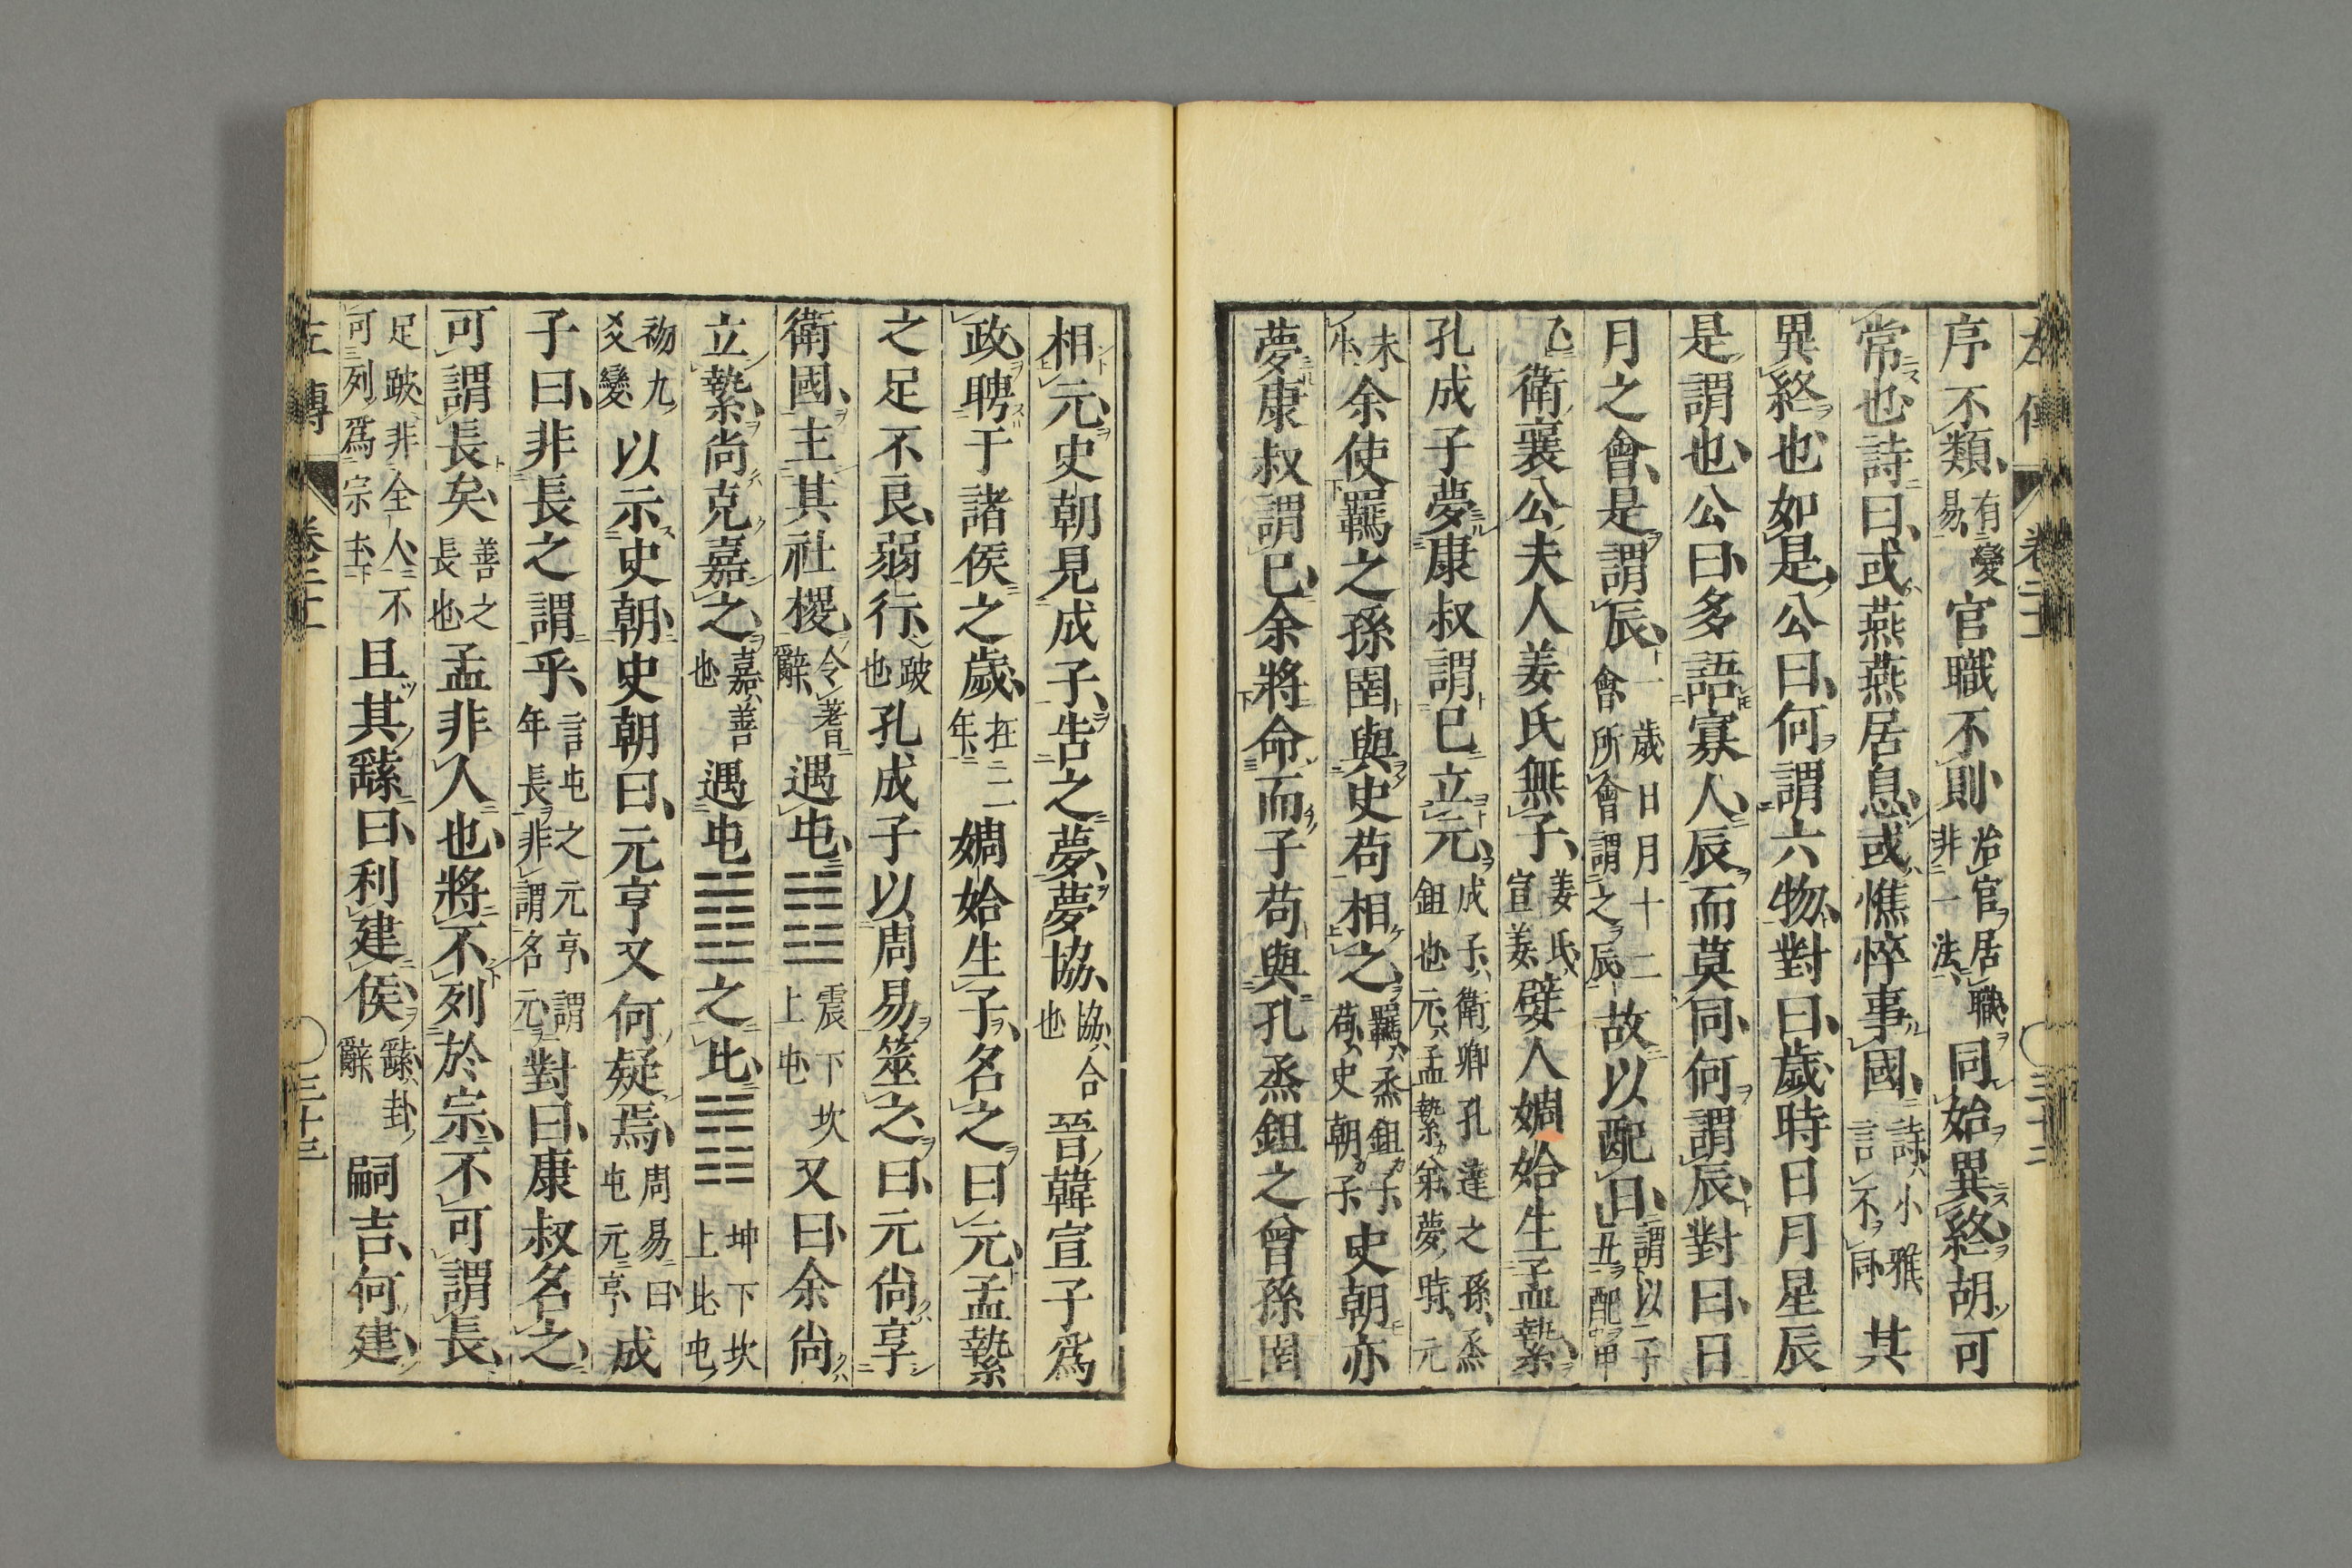 左傳 卷二十一 三十二
序不類有變易官職不則治官居職非一法同始異終胡可
常也詩曰或燕燕居息或憔悴事國詩小雅言不同其
異終也如是公曰何謂六物對曰歲時日月星辰
是謂也公曰多語寡人辰而莫同何謂辰對曰日
月之會是謂辰一歲日月十二會所會謂之辰故以配日謂以子丑配甲
乙衛襄公夫人姜氏無子姜氏宣姜嬖人婤姶生孟縶
孔成子夢康叔謂己立元成子衛卿孔達之孫烝鉏也元孟縶弟夢時元
未生余使羈之孫圉與史苟相之羈烝鉏子苟史朝子史朝亦
夢康叔謂己余將命而子苟與孔烝鉏之曾孫圉
相元史朝見成子告之夢夢協協合也晉韓宣子爲
政聘于諸侯之歲在二年婤姶生子名之曰元孟縶
之足不良弱行跛也孔成子以周易筮之曰元尚享
衛國主其社稷令蓍辭遇屯䷂震下坎上屯又曰余尚
立縶尚克嘉之嘉善也遇屯䷂之比䷇坤下坎上比屯
初九爻變以示史朝史朝曰元亨又何疑焉周易曰屯元亨成
子曰非長之謂乎言屯之元亨謂年長非謂名元對曰康叔名之
可謂長矣善之長也孟非人也將不列於宗不可謂長
足跛非全人不可列爲宗主且其繇曰利建侯繇卦辭嗣吉何建
左傳 卷二十一 三十三